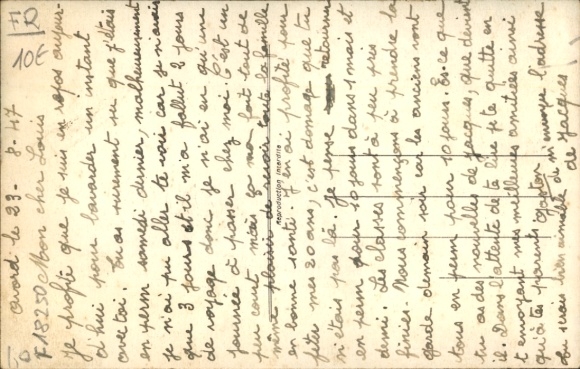 FR
10€
F18250
Avord le 23-8-47
Mon cher Louis
Je profite que je suis en repos aujour-
d'hui pour bavarder un instant
avec toi. Tu as surement su que j'étais
en perm samedi dernier, malheureusement
je n'ai pu aller te voir car je n'avais
que 3 jours et il m'a fallut 2 jours
de voyage donc je n'ai eu qu'une
journée à passer chez moi. C'est un
peu court mais ça fait tout de
même plaisir de revoir toute la famille
en bonne santé. J'en ai profité pour
fêter mes 20 ans, c'est domage que tu
n'étais pas là. Je pense retourner
en perm pour 10 jours dans 1 mois et
demi. Les classes sont à peu près
finies. Nous commençons à prendre la
garde demain soir car les anciens sont
tous en perm pour 10 jours. Es-ce que
tu as des nouvelles de Jacques, que devient
il. Dans l'attente de te lire je te quitte en
t'envoyant mes meilleures amitiées ainsi
qu'à tes parents Gaston
Tu serais bien aimable de m'envoyé l'adresse
de Jacques
Reproduction interdite